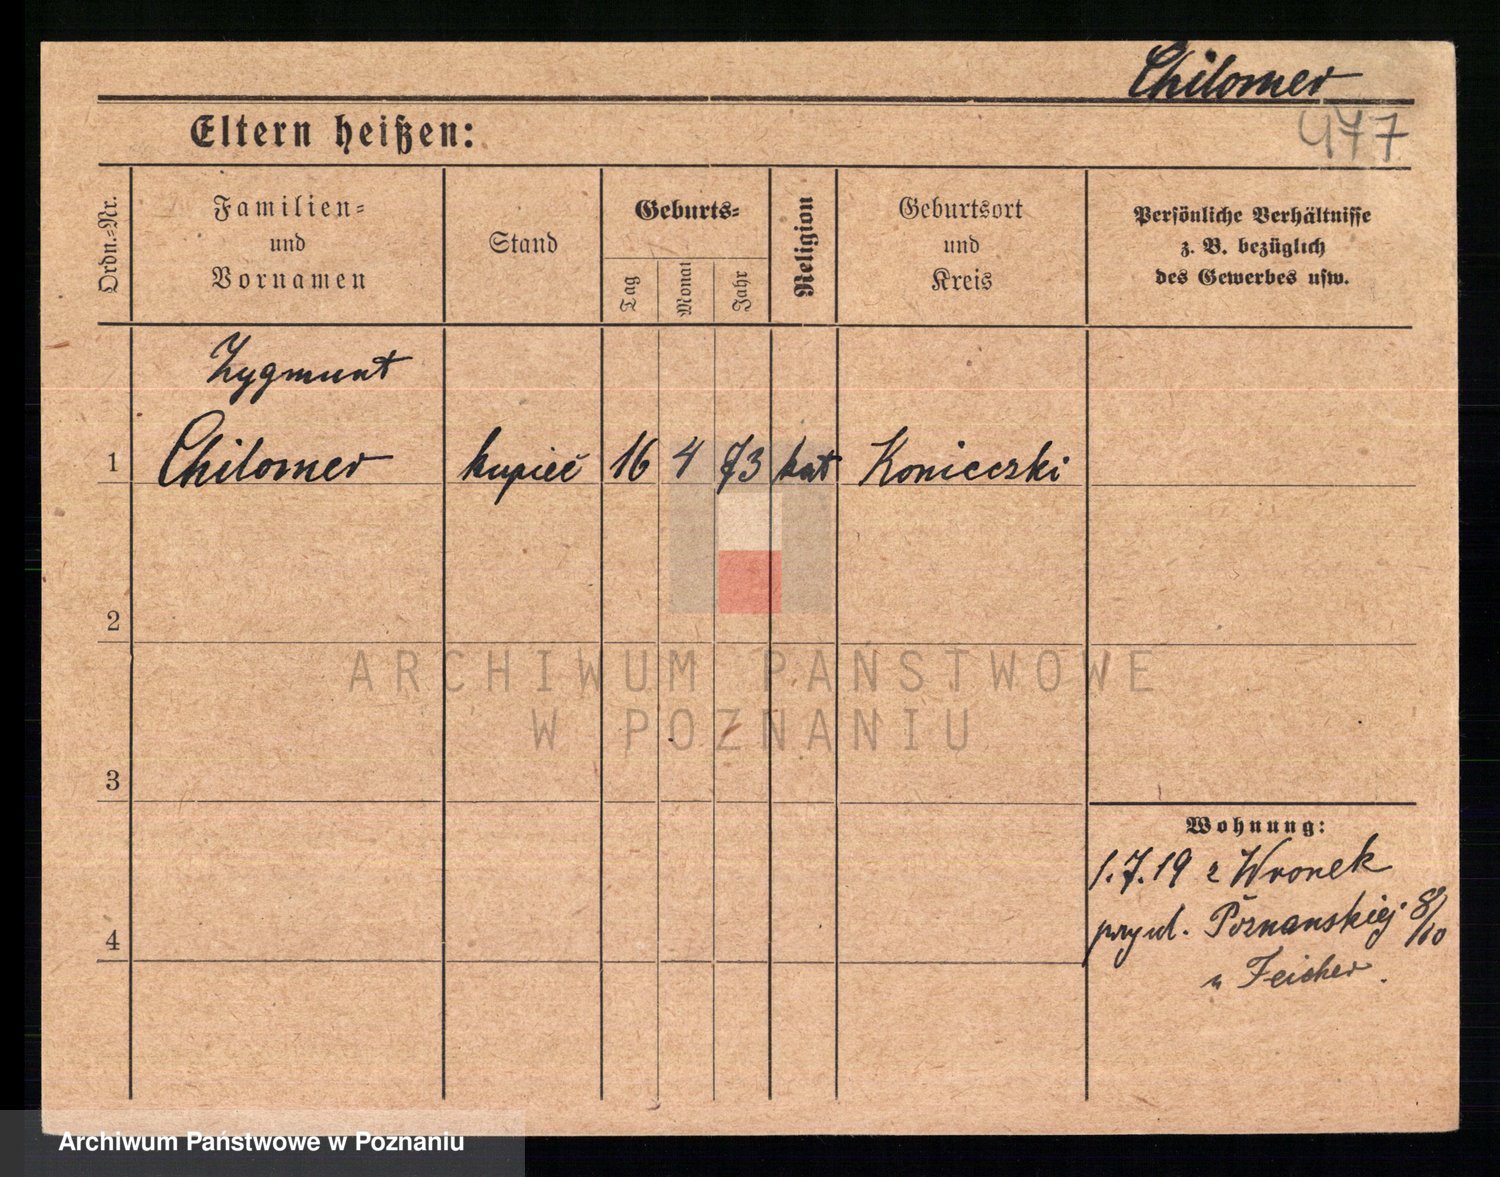 Chilomer
477
Eltern heißen:
Ordn.=Nr.
Familien=
und
Vornamen
Stand
Geburts=
Tag
Monat
Jahr
Religion
Geburtsort
und
Kreis
Persönliche Verhältnisse
z. B. bezüglich
des Gewerbes usw.
Zygmunt
1 Chilomer kupiec 16 4 73 kat Konieczki
2
3
4
Wohnung:
1.7.19 z Wronek
przy ul. Poznanskiej 8/10
u Feicher.
ARCHIWUM PAŃSTWOWE
W POZNANIU
Archiwum Państwowe w Poznaniu